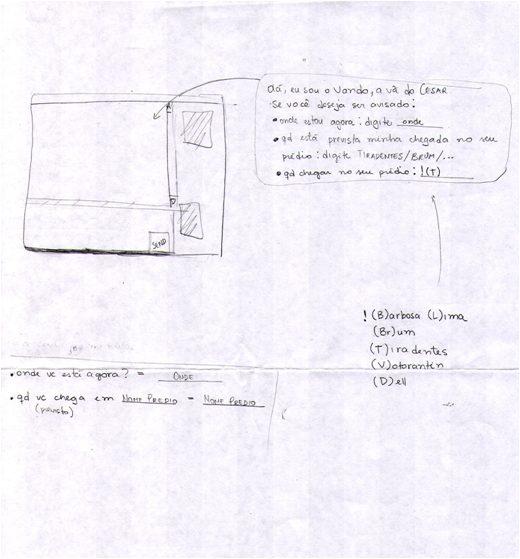 Olá, eu sou o Vando, a vã do CESAR
Se você deseja ser avisado:
• onde estou agora: digite onde
• qd está prevista minha chegada no seu
prédio: digite TIRADENTES/BRUM/...
• qd chegar no seu prédio: !(T)
SEND
! (B)arbosa (L)ima
(Br)um
(T)iradentes
(V)otorantin
(D)ell
• onde vc está agora? = ONDE
• qd vc chega em NOME PREDIO = NOME PREDIO
(previsto)